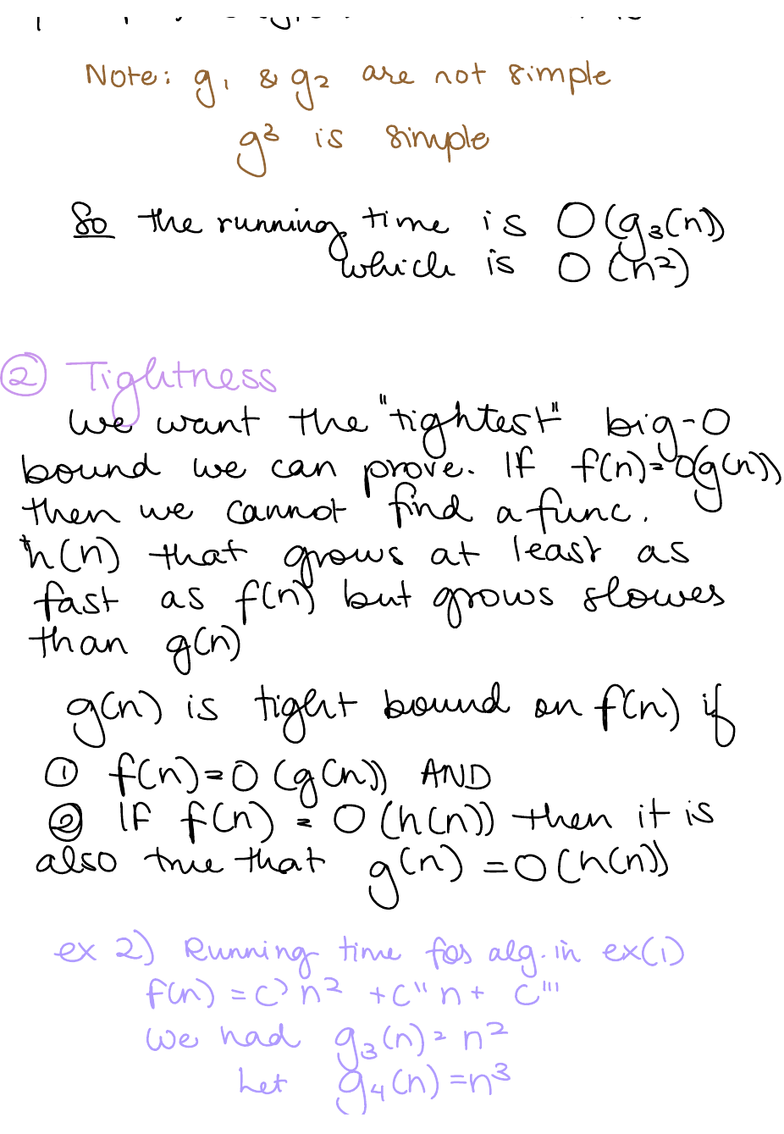 Note: g₁ & g₂ are not simple
g³ is simple
So the running time is O(g₃(n))
which is O(n²)
② Tightness
We want the "tightest" big-O
bound we can prove. If f(n)=O(g(n))
then we cannot find a func.
h(n) that grows at least as
fast as f(n) but grows slower
than g(n)
g(n) is tight bound on f(n) if
① f(n)=O(g(n)) AND
② If f(n) = O(h(n)) then it is
also true that g(n) =O(h(n))
ex 2) Running time for alg. in ex(1)
f(n) = c' n² + c'' n + c'''
We had g₃(n) = n²
Let g₄(n) = n³